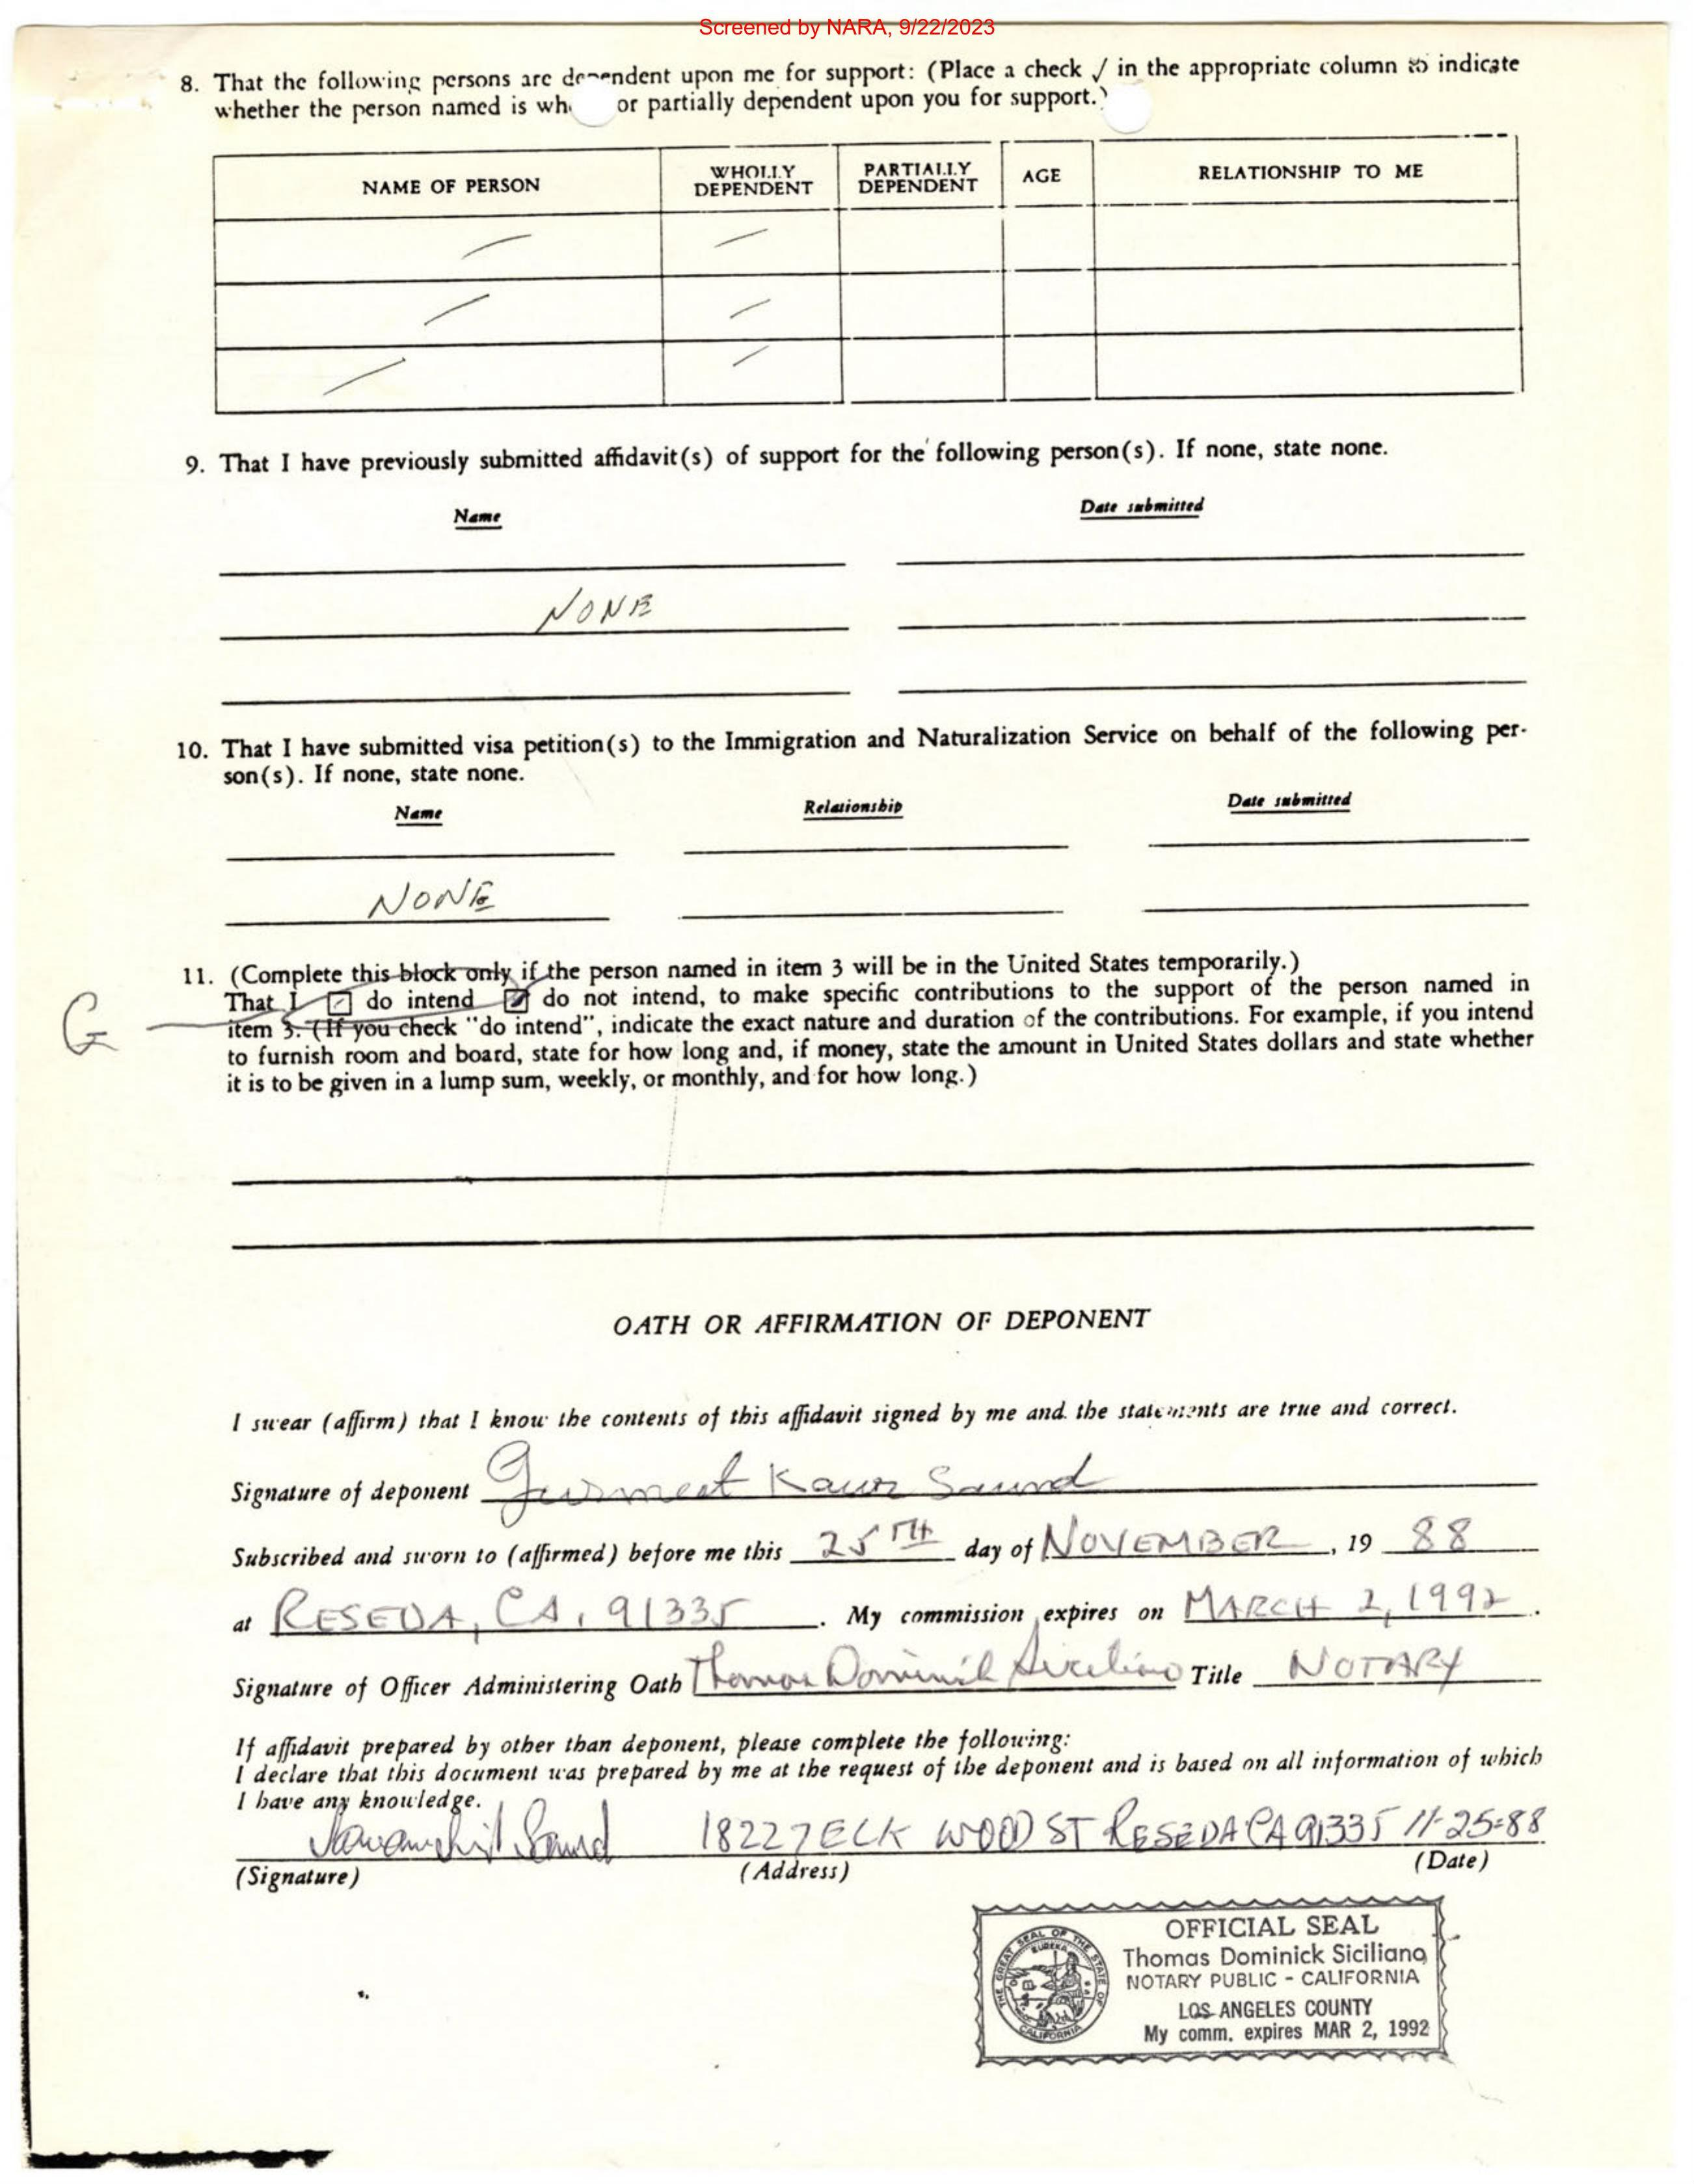 Screened by NARA, 9/22/2023
8. That the following persons are dependent upon me for support: (Place a check ✓ in the appropriate column to indicate
whether the person named is wh or partially dependent upon you for support.)
NAME OF PERSON WHOLLY DEPENDENT PARTIALLY DEPENDENT AGE RELATIONSHIP TO ME
9. That I have previously submitted affidavit(s) of support for the following person(s). If none, state none.
Name Date submitted
NONE
10. That I have submitted visa petition(s) to the Immigration and Naturalization Service on behalf of the following per-
son(s). If none, state none.
Name Relationship Date submitted
NONE
11. (Complete this block only if the person named in item 3 will be in the United States temporarily.)
That I do intend do not intend, to make specific contributions to the support of the person named in
G item 3. (If you check "do intend", indicate the exact nature and duration of the contributions. For example, if you intend
to furnish room and board, state for how long and, if money, state the amount in United States dollars and state whether
it is to be given in a lump sum, weekly, or monthly, and for how long.)
OATH OR AFFIRMATION OF DEPONENT
I swear (affirm) that I know the contents of this affidavit signed by me and the statements are true and correct.
Signature of deponent Gurmeet Kaur Saund
Subscribed and sworn to (affirmed) before me this 25TH day of NOVEMBER, 19 88
at RESEDA, CA, 91335. My commission expires on MARCH 2, 1992.
Signature of Officer Administering Oath Thomas Dominick Siciliano Title NOTARY
If affidavit prepared by other than deponent, please complete the following:
I declare that this document was prepared by me at the request of the deponent and is based on all information of which
I have any knowledge.
Saund 18227 ELK WOOD ST RESEDA CA 91335 11-25-88
(Signature) (Address) (Date)
OFFICIAL SEAL
Thomas Dominick Siciliano
NOTARY PUBLIC - CALIFORNIA
LOS ANGELES COUNTY
My comm. expires MAR 2, 1992
THE GREAT SEAL OF THE STATE OF CALIFORNIA
EUREKA